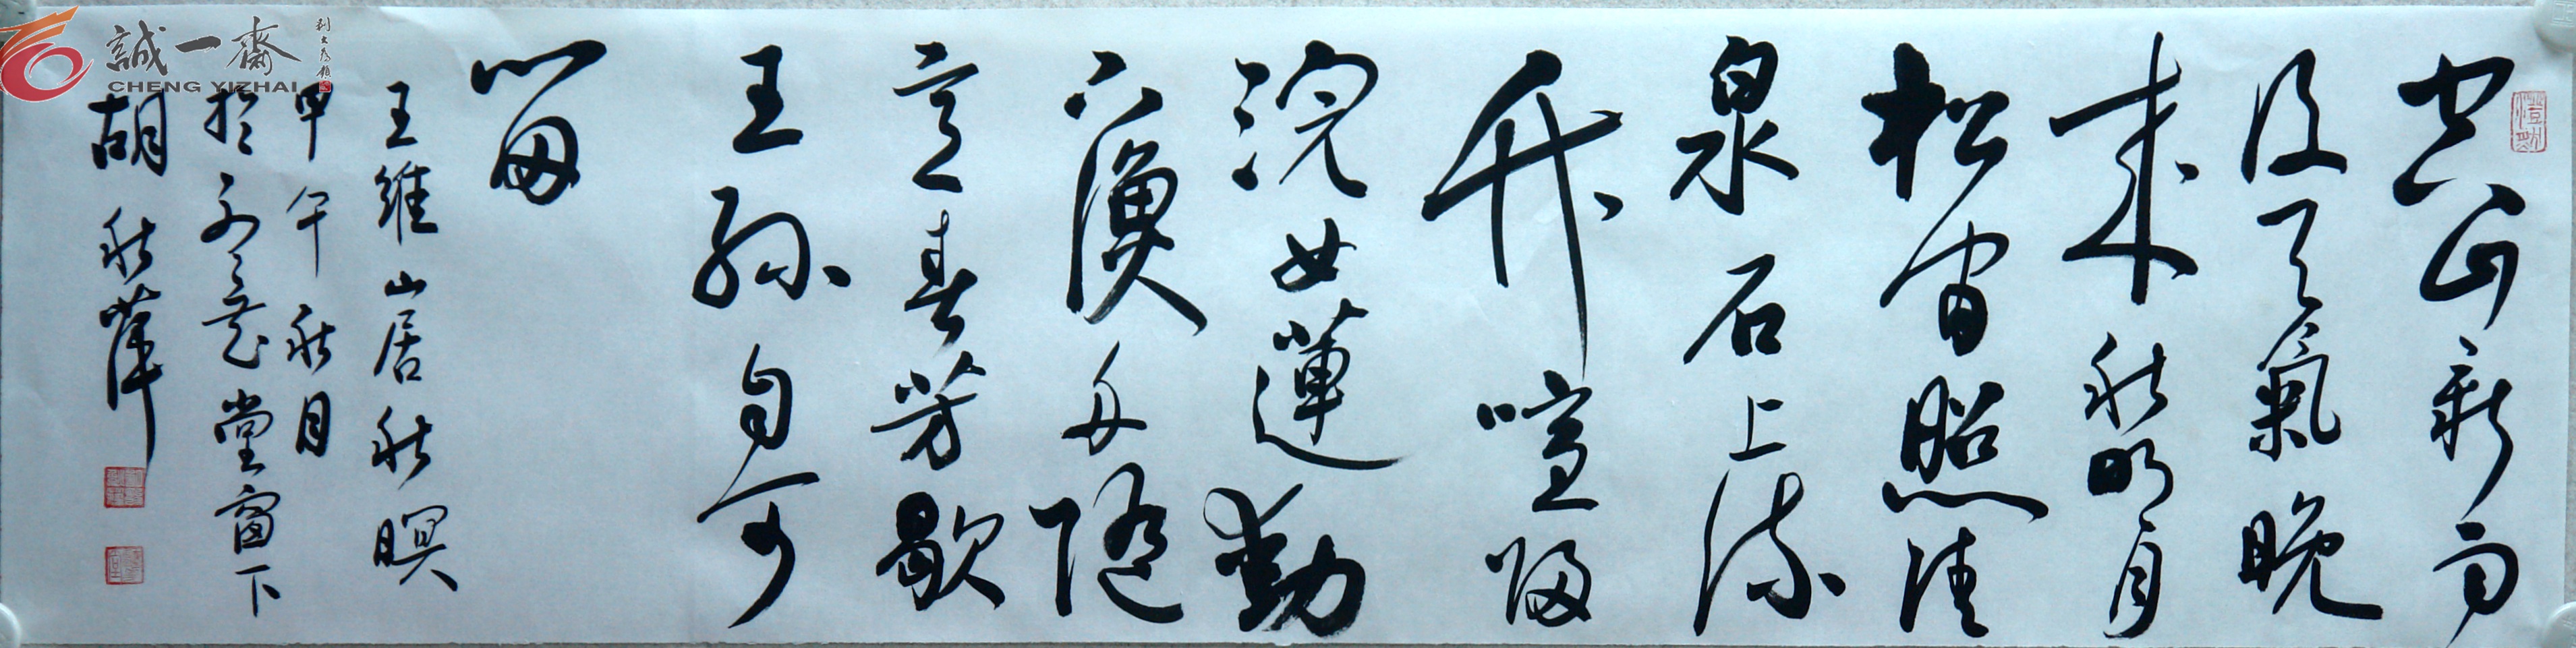 空山新雨
後天氣晚
來秋明月
松間照清
泉石上流
竹喧歸
浣女蓮動
下漁舟隨
意春芳歇
王孫自可
留
王維山居秋暝
甲午秋月
於堂窗下
胡秋萍
誠一齋
CHENG YIZHAI